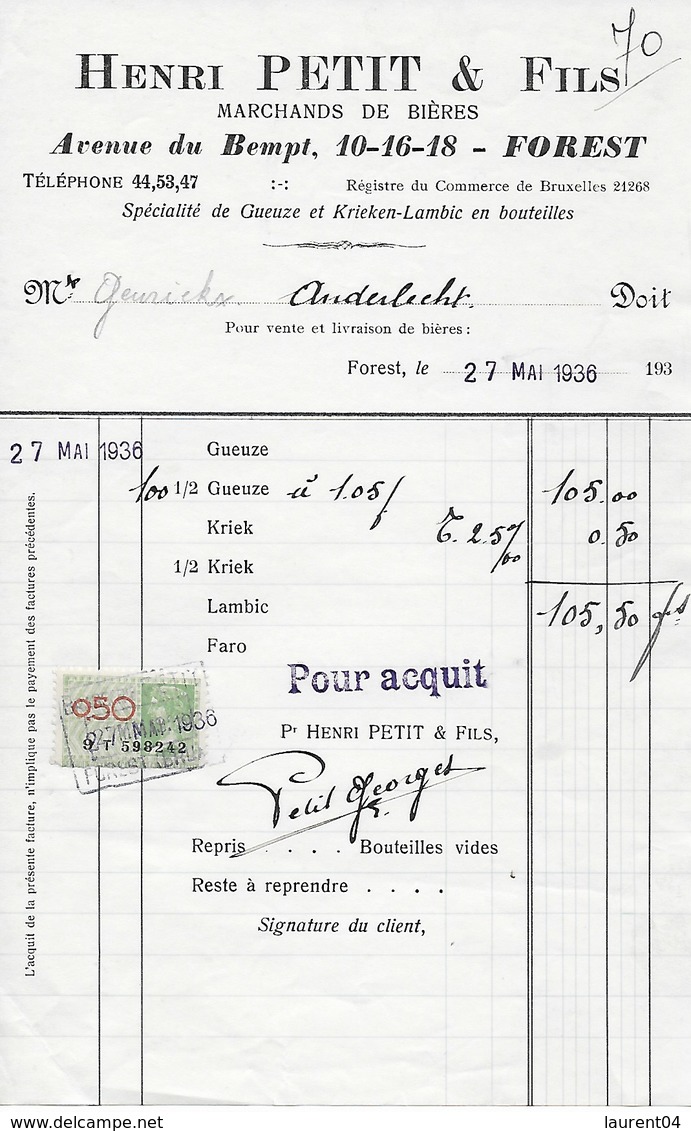 70
HENRI PETIT & FILS
MARCHANDS DE BIÈRES
Avenue du Bempt, 10-16-18 - FOREST
TÉLÉPHONE 44,53,47 :-: Régistre du Commerce de Bruxelles 21268
Spécialité de Gueuze et Krieken-Lambic en bouteilles
Mr Anderlecht. Doit
Pour vente et livraison de bières :
Forest, le 27 MAI 1936 193
27 MAI 1936 Gueuze
100 1/2 Gueuze à 1.05 105.00
Kriek T. 2.5 0.50
1/2 Kriek
Lambic 105,50 frs
Faro
Pour acquit
0.50
27 MAI 1936
9 T 598242
FOREST
Pr HENRI PETIT & FILS,
Petit Georges
Repris . . . . Bouteilles vides
Reste à reprendre . . . .
Signature du client,
L'acquit de la présente facture, n'implique pas le payement des factures précédentes.
delcampe.net
laurent04